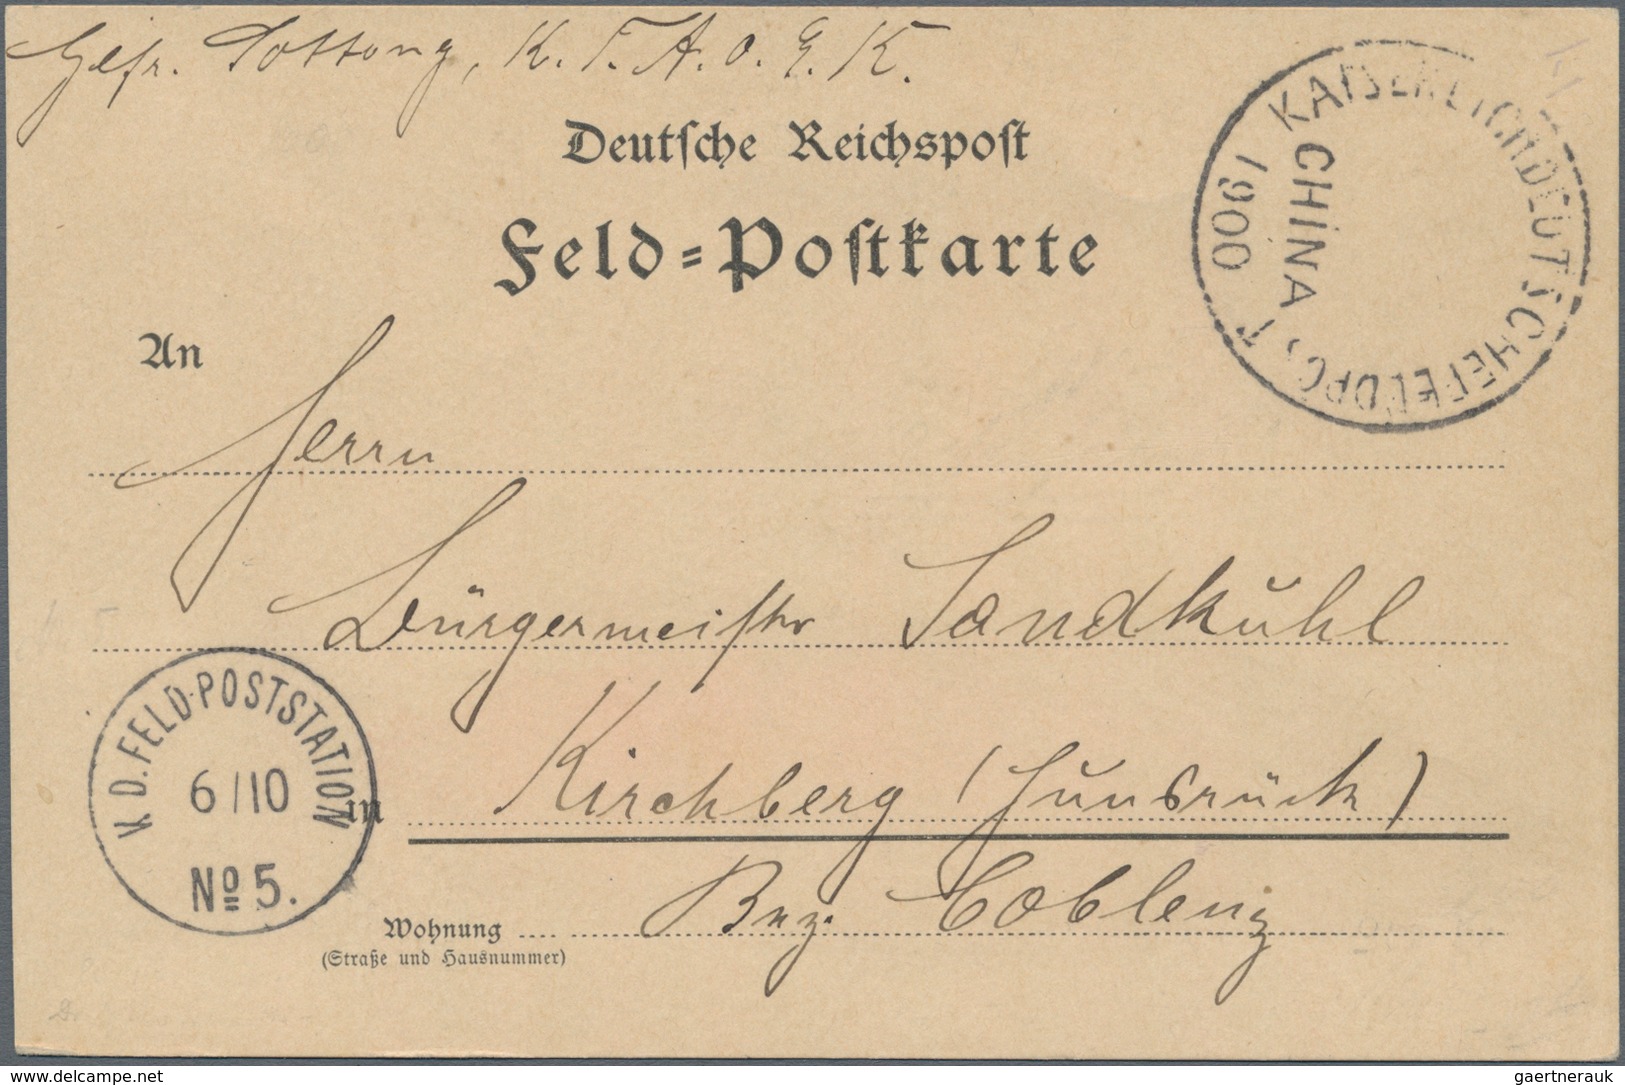 Gefr. Tottong, K. T. A. O. E. K.
Deutsche Reichspost
Feld=Postkarte
KAISERLICH DEUTSCHE FELDPOST
CHINA
1900
An
Herrn
Bürgermeister Sandkühl
K. D. FELD-POSTSTATION
6/10
No 5.
in Kirchberg (Hunsrück)
Bez. Coblenz
Wohnung
(Straße und Hausnummer)
www.delcampe.net
gaertnerauk